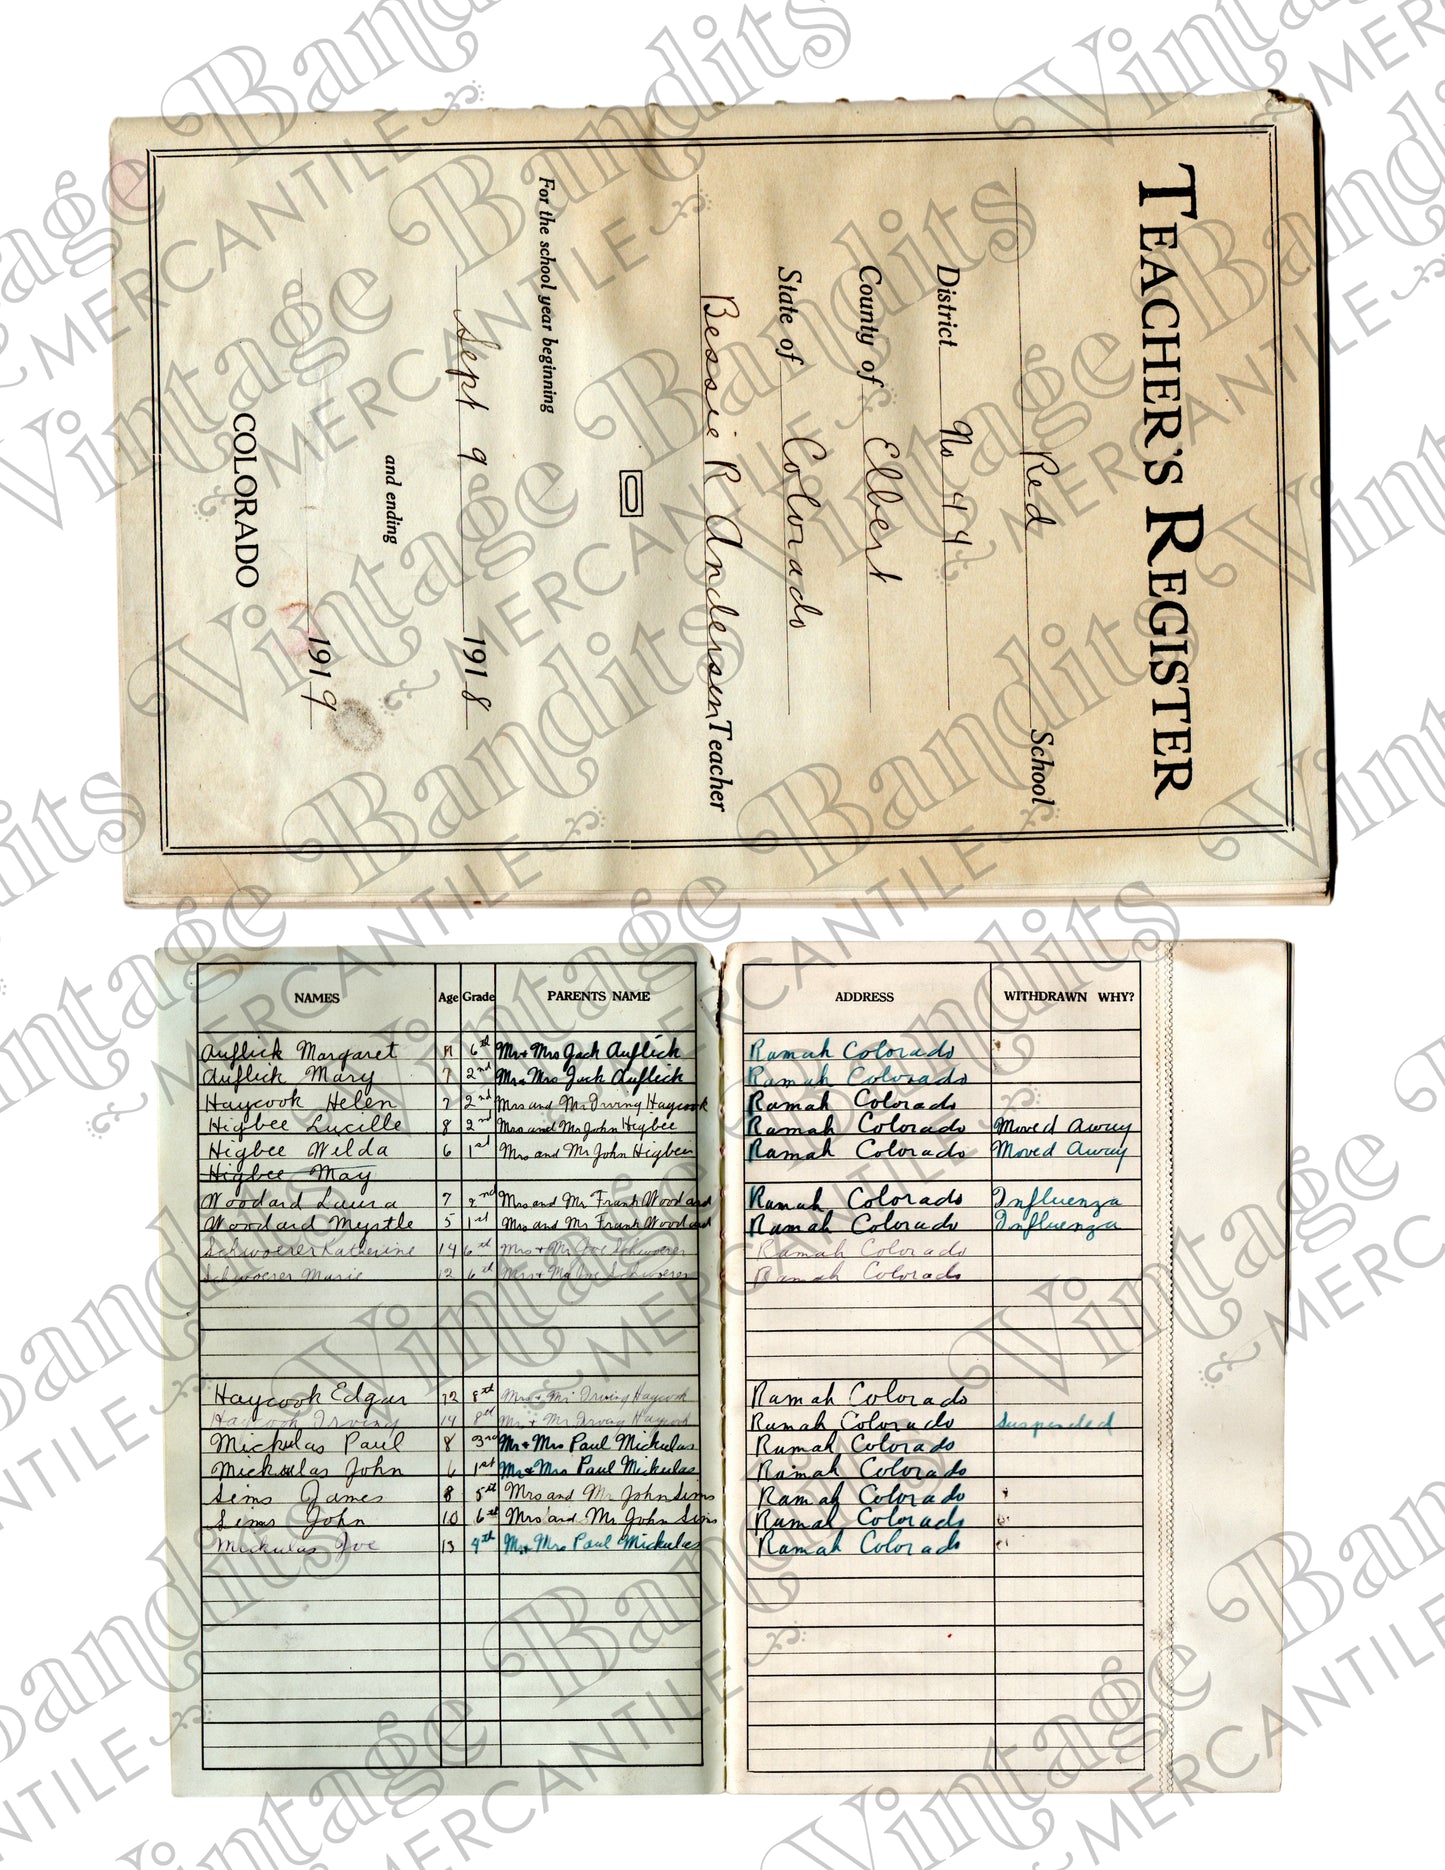 TEACHER'S REGISTER
Red School
District No 44
County of Elbert
State of Colorado
Bessie R Andersen Teacher
For the school year beginning
Sept 9 1918
and ending
1919
COLORADO
NAMES Age Grade PARENTS NAME ADDRESS WITHDRAWN WHY?
Auflick Margaret 11 6th Mr + Mrs Jack Auflick Ramah Colorado
Auflick Mary 7 2nd Mr + Mrs Jack Auflick Ramah Colorado
Haycook Helen 7 2nd Mrs and Mr Irving Haycook Ramah Colorado
Higbee Lucille 8 2nd Mrs and Mr John Higbee Ramah Colorado Moved Away
Higbee Wilda 6 1st Mrs and Mr John Higbee Ramah Colorado Moved Away
Higbee May
Woodard Laura 7 2nd Mrs and Mr Frank Woodard Ramah Colorado Influenza
Woodard Myrtle 5 1st Mrs and Mr Frank Woodard Ramah Colorado Influenza
Schwoerer Katherine 14 6th Mrs + Mr Joe Schwoerer Ramah Colorado
Schwoerer Marie 12 6th Mrs + Mr Joe Schwoerer Ramah Colorado
Haycook Edgar 12 8th Mrs + Mr Irving Haycook Ramah Colorado
Haycook Irving 14 8th Mrs + Mr Irving Haycook Ramah Colorado Suspended
Mickulas Paul 8 3rd Mr + Mrs Paul Mickulas Ramah Colorado
Mickulas John 6 1st Mr + Mrs Paul Mickulas Ramah Colorado
Sims James 8 5th Mrs and Mr John Sims Ramah Colorado
Sims John 10 6th Mrs and Mr John Sims Ramah Colorado
Mickulas Joe 13 4th Mr + Mrs Paul Mickulas Ramah Colorado
Vintage Bandits
MERCANTILE